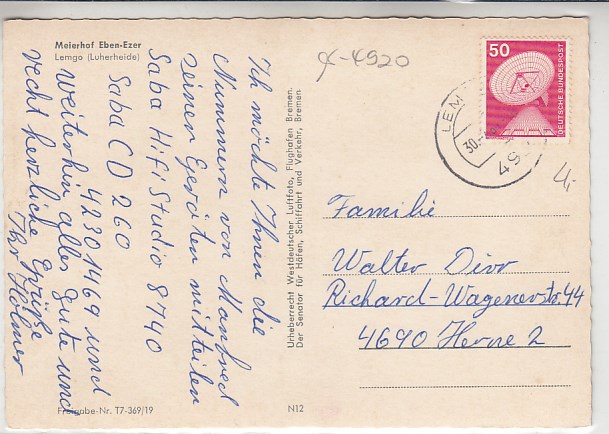 Meierhof Eben-Ezer
Lemgo (Luherheide)
Ich möchte Ihnen die
Nummern von Manfred
seinen Geräten mitteilen
Saba HiFi Studio 8740
42301469 und
Saba CD 260
weiterhin alles Gute und
recht herzliche Grüße
Ihr Holmer
Freigabe-Nr. T7-369/19
Urheberrecht Westdeutscher Luftfoto, Flughafen Bremen.
Der Senator für Häfen, Schiffahrt und Verkehr, Bremen
N12
x-4920
50
DEUTSCHE BUNDESPOST
LEM
30.
492
4,-
Familie
Walter Dirr
Richard-Wagenerstr. 44
4690 Herne 2